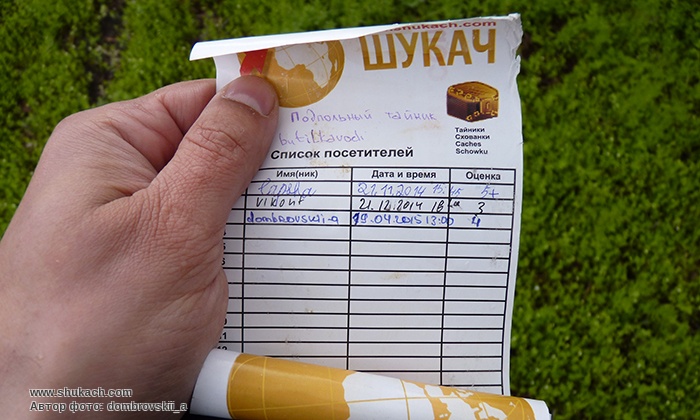 shukach.com
ШУКАЧ
Подпольный тайник
butilkavodi
Тайники
Схованки
Caches
Schowku
Список посетителей
Имя(ник) Дата и время Оценка
21.11.2014 15:45 5+
vikont 21.12.2014 3
dombrovskii-a 19.04.2015 13:00 4
www.shukach.com
Автор фото: dombrovskii_a